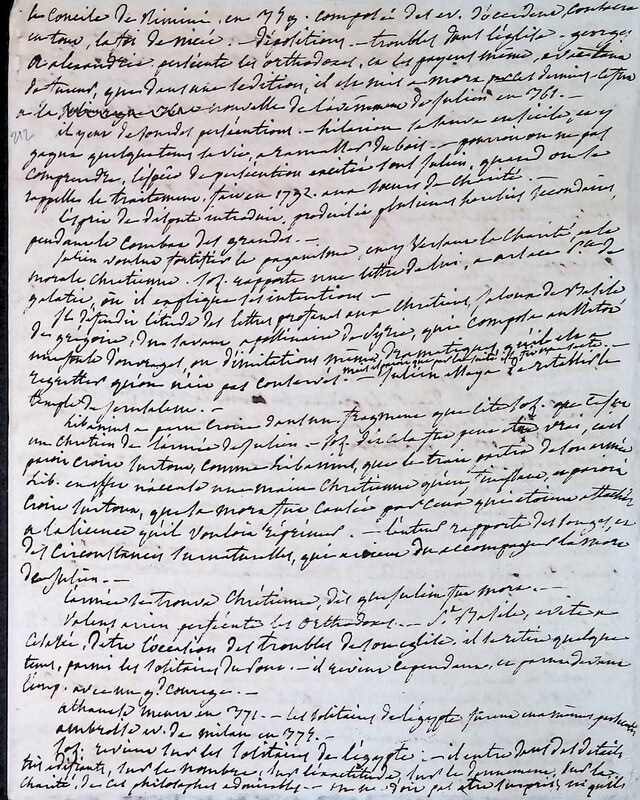 le Concile de Rimini, en 359. composé des ev. d'occident, contraire
en tout, la foi de nicée. - dépositions - troubles dans l'église - george
d'alexandrie persécute les orthodoxes, et les payens même, avec tant
de fureur, que dans une sédition, il est mis à mort
à la nouvelle de l'évènement de Julien en 361. -
212
il y eut de sourdes persécutions - hilarion se sauve en sicile, en y
gagna quelque tems sa vie, à ramasser du bois - pourroit on ne pas
comprendre, l'espèce de persécution excitée sous Julien, quand on se
rappelle le traitement, fait en 1792. aux soeurs de charité. -
L'esprit de dispute introduit, produisit plusieurs hérésies secondaires
pendant le combat des grandes. -
Julien voulut fortifier le paganisme, en y versant la charité, et la
morale chrétienne. Soz. rapporte une lettre de lui, à arsace de
galatie, où il explique ses intentions -
Il défendit l'étude des lettres profanes aux chrétiens, jaloux de Basile
de grégoire, du savant apollinaire de syrie, qui composa
une foule d'ouvrages, ou d'imitations même dramatiques, qu'il est à
regretter qu'on n'ait pas conservés. - Julien essaya de rétablir le
temple de Jerusalem. -
Libanius a paru croire dans un fragment que cite Soz. que ce fut
un chrétien de l'armée de Julien - Soz. dit cela peut être vrai, c'est
paroit croire surtout, comme libanius, que le trait partit de son armée
Lib. en effet n'accuse une main chrétienne qu'en , et paroit
croire surtout, que la mort fut causée par ceux qui étoient attachés
à la licence qu'il vouloit réprimer. - l'auteur rapporte des songes, et
des circonstances surnaturelles, qui avoient du accompagner la mort
de Julien. -
L'armée se trouva chrétienne, dès que Julien fut mort. -
Valens arien persécute les orthodoxes. - St Basile, évite à
Césarée, d'être l'occasion des troubles de son église, il se retire quelque
tems, parmi les solitaires du Pont. - il revient cependant, et parait devant
l'emp. avec un gd courage. -
athanase meurt en 371. - les solitaires de l'égypte furent eux mêmes persécutés,
ambroise ev. de milan en 374.
Soz. revient sur les solitaires de l'égypte. - il entre dans des détails
très édifiants, sur le nombre, sur l'exactitude, sur le , sur la
charité, de ces philosophes admirables - on ne doit pas être surpris, qu'ils